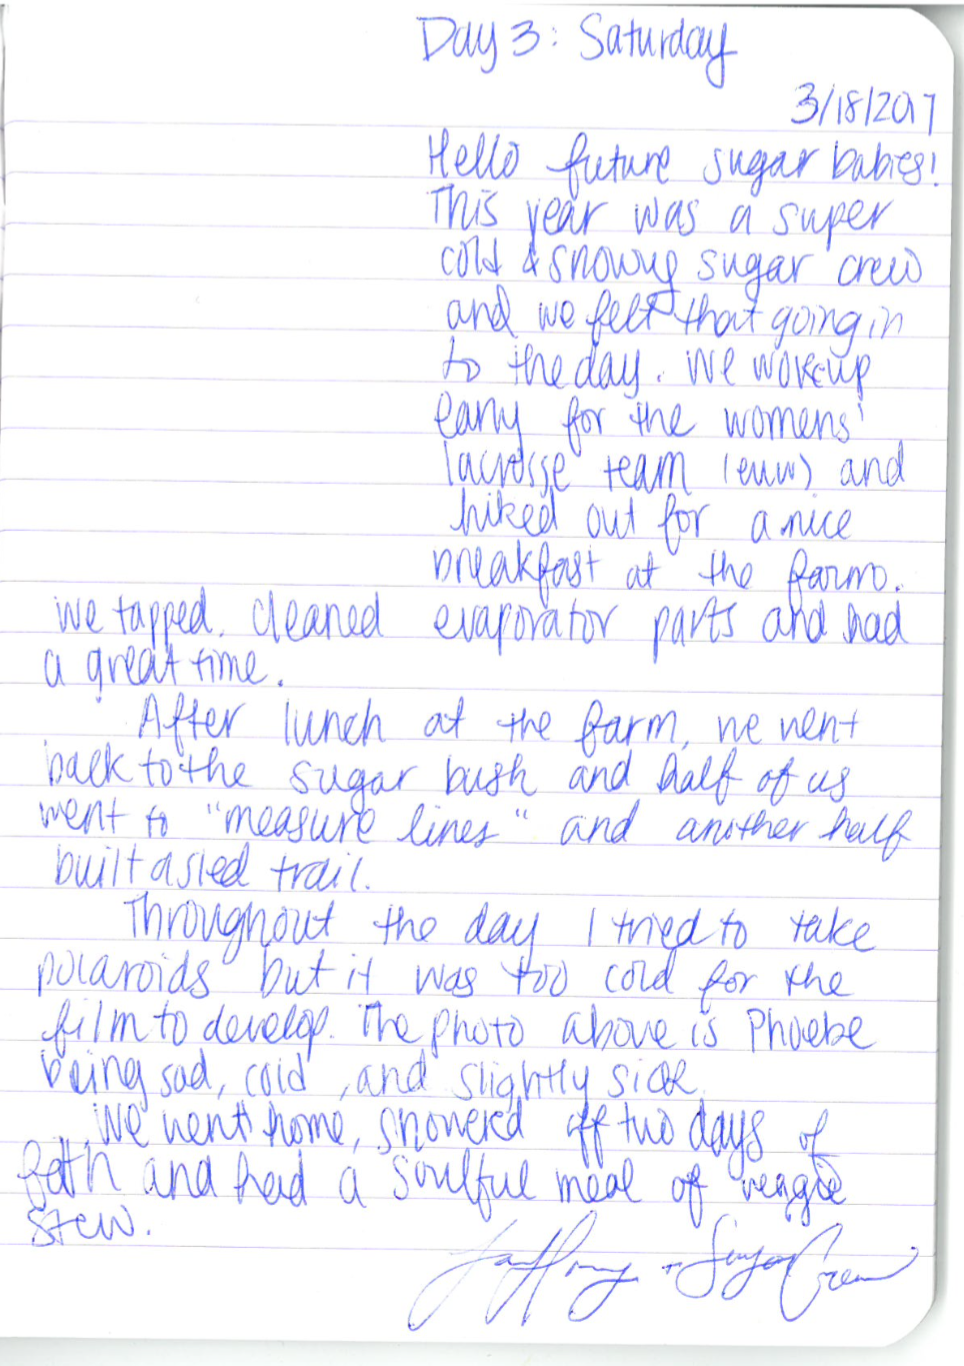 Day 3: Saturday
3/18/2017
Hello future sugar babies!
This year was a super
cold & snowy sugar crew
and we felt that going in
to the day. We woke up
early for the womens'
lacrosse team (euw) and
hiked out for a nice
breakfast at the farm.
We tapped, cleaned evaporator parts and had
a great time.
After lunch at the farm, we went
back to the sugar bush and half of us
went to "measure lines" and another half
built a sled trail.
Throughout the day I tried to take
polaroids but it was too cold for the
film to develop. The photo above is Phoebe
being sad, cold, and slightly sick.
We went home, showered off two days of
filth and had a soulful meal of veggie
stew.
+ Sugar Crew